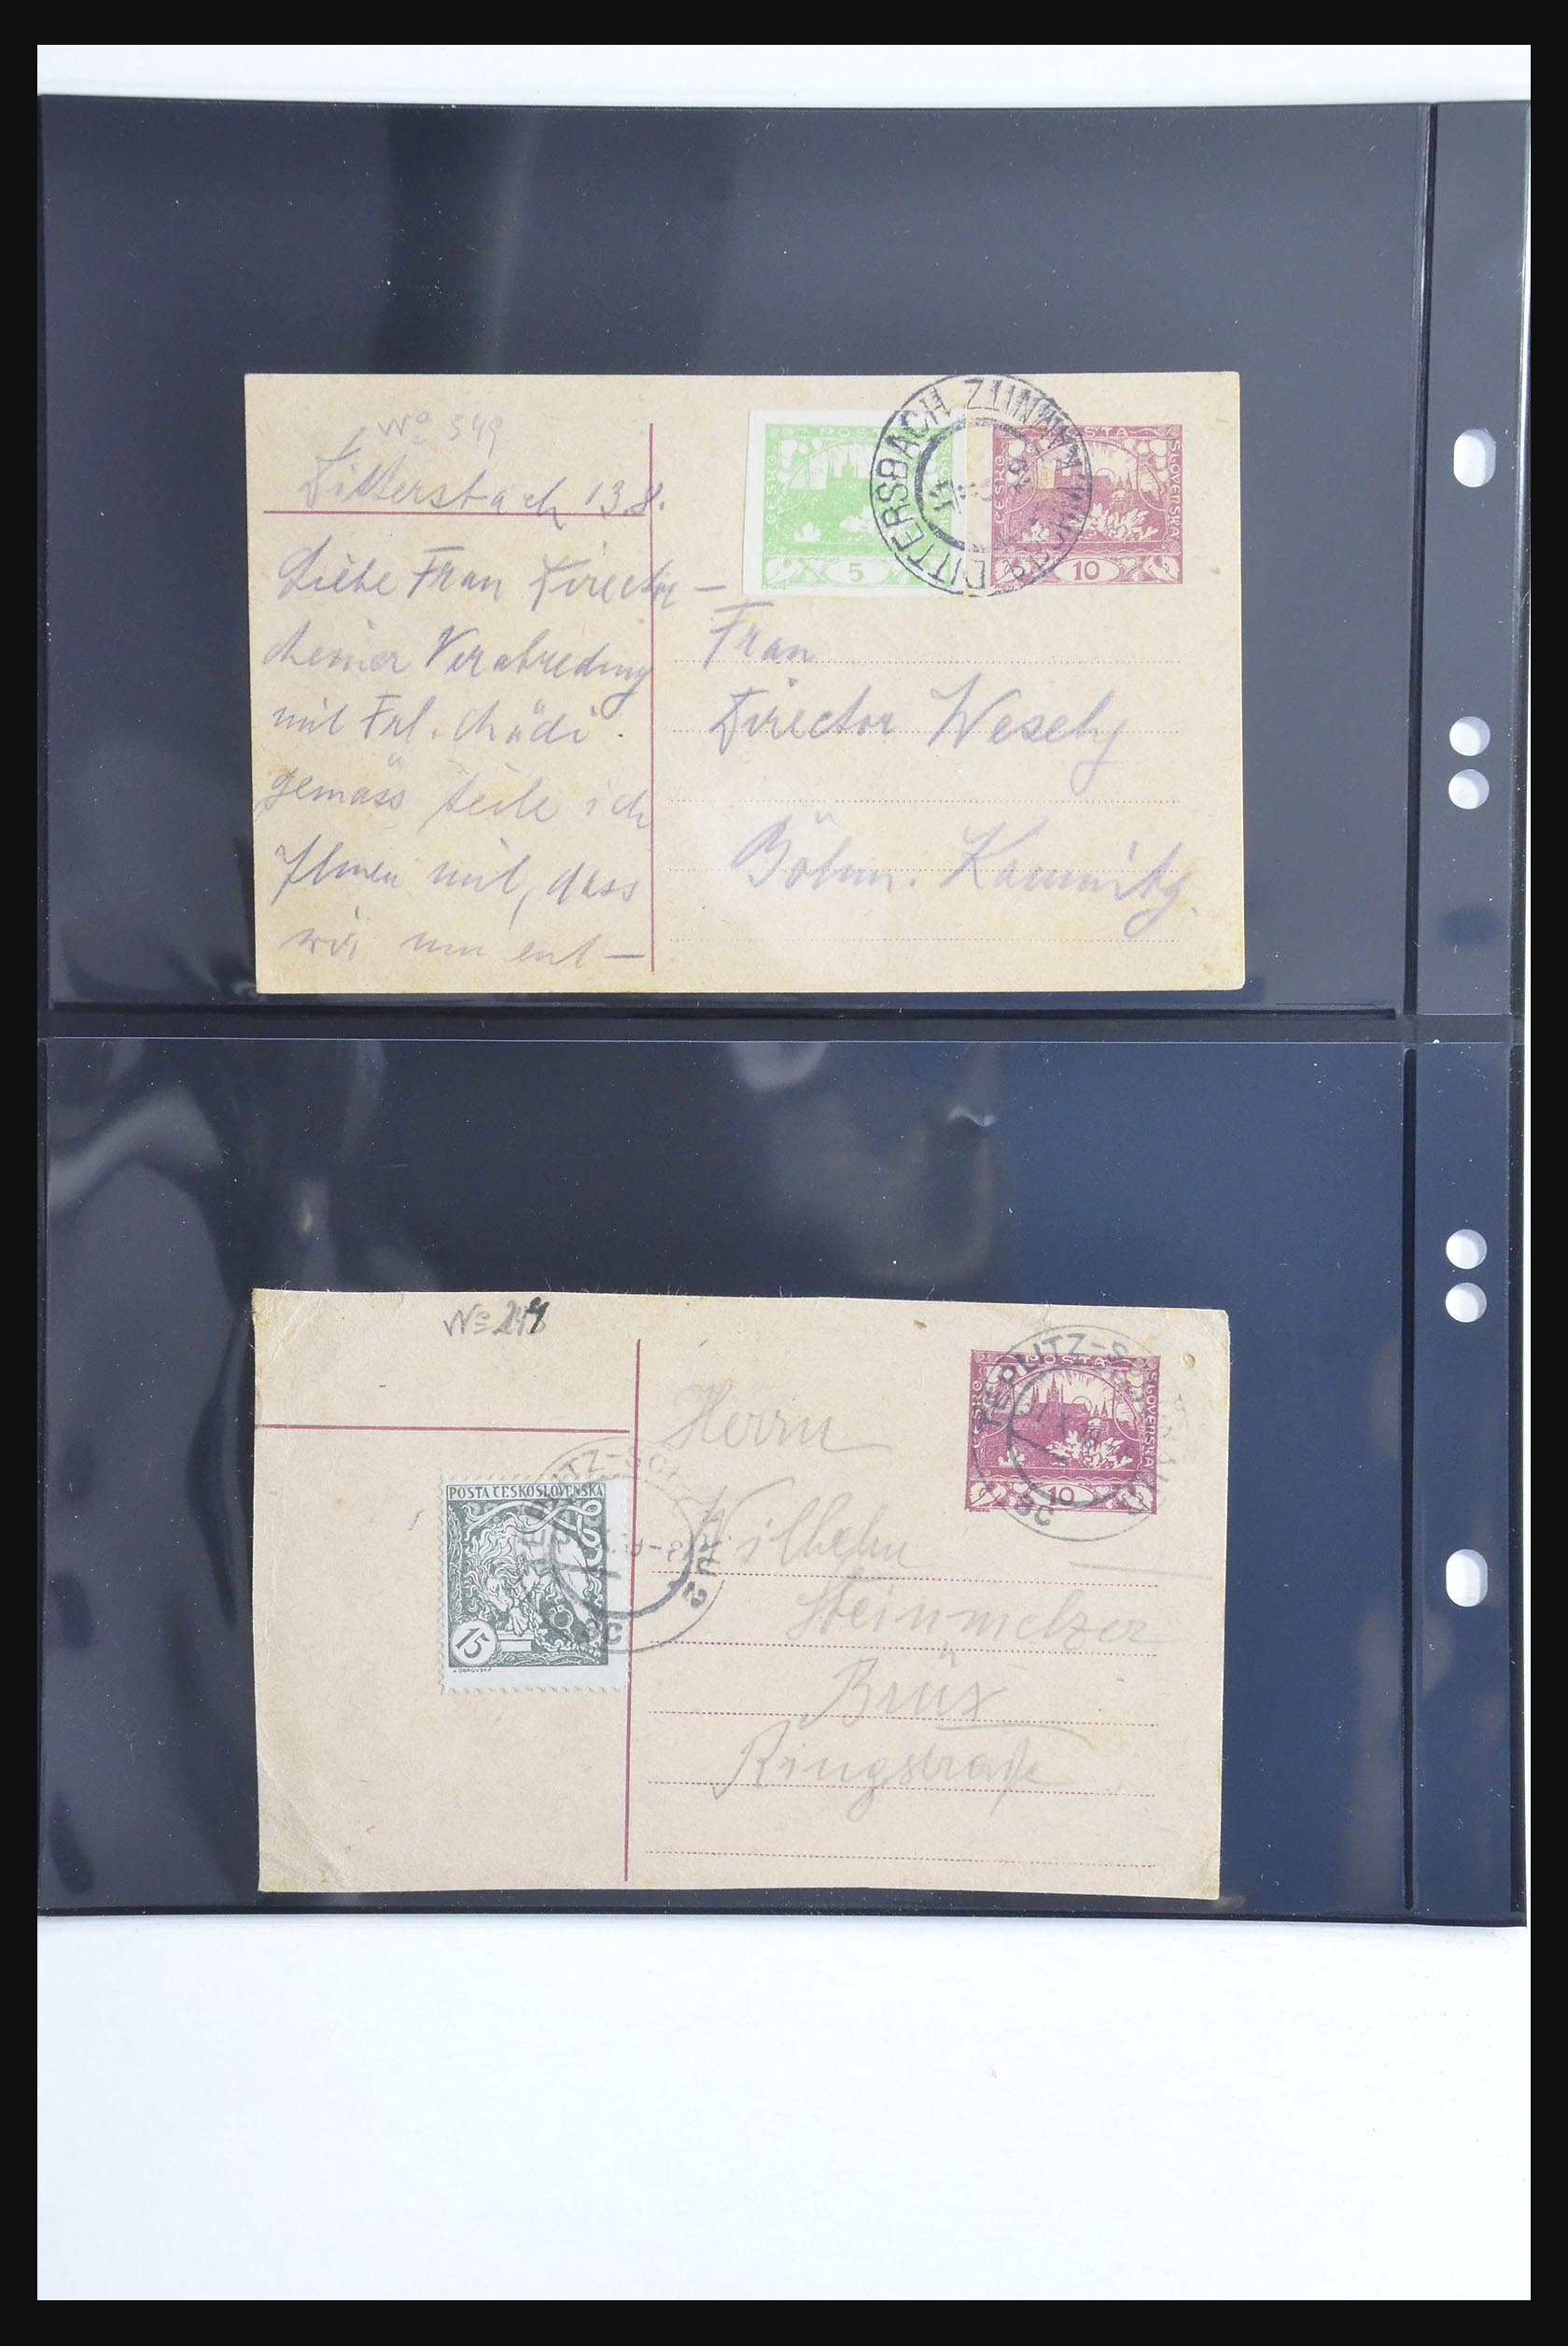 No 349
Dittersbach 13.8.
Liebe Frau Director
meiner Verabredung
mit Frl. Mädi
gemäss teile ich
Ihnen mit, dass
wir um ent—
POSTA
ČESKO
SLOVENSKÁ
5
POSTA
SLOVENSKÁ
10
DITTERSBACH
Frau
Director Wesely
Böhm. Kamnitz.
No 248
POSTA ČESKOSLOVENSKÁ
15
POSTA
ČESKO
SLOVENSKÁ
10
TEPLITZ-SCH
3c
TEPLITZ-SCH
2
3c
Herrn
Wilhelm
Steinmetzer
Brüx
Ringstraße